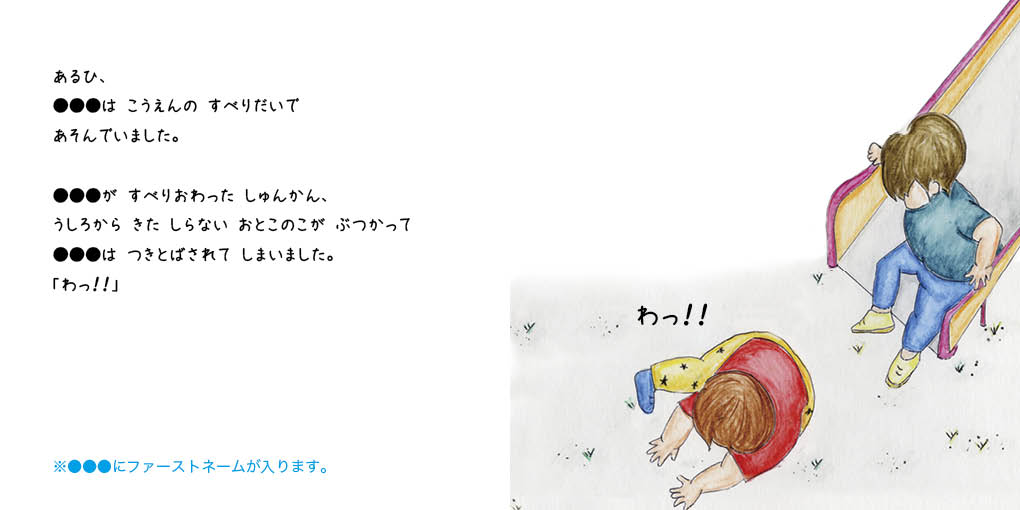 あるひ、
●●●は こうえんの すべりだいで
あそんでいました。
●●●が すべりおわった しゅんかん、
うしろから きた しらない おとこのこが ぶつかって
●●●は つきとばされて しまいました。
「わっ!!」
わっ!!
※●●●にファーストネームが入ります。